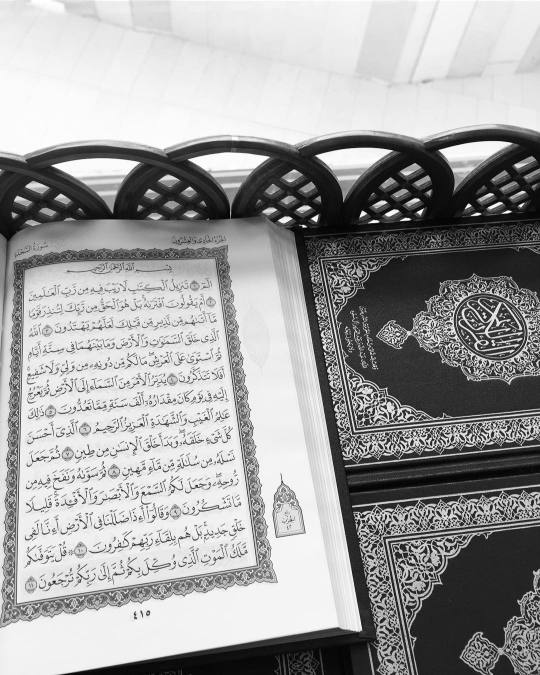 الجزء الحادي والعشرون سورة السجدة
بِسْمِ ٱللَّهِ ٱلرَّحْمَٰنِ ٱلرَّحِيمِ
الٓمٓ ١ تَنزِيلُ ٱلْكِتَٰبِ لَا رَيْبَ فِيهِ مِن رَّبِّ ٱلْعَٰلَمِينَ
٢ أَمْ يَقُولُونَ ٱفْتَرَىٰهُ بَلْ هُوَ ٱلْحَقُّ مِن رَّبِّكَ لِتُنذِرَ قَوْمًا
مَّآ أَتَىٰهُم مِّن نَّذِيرٍ مِّن قَبْلِكَ لَعَلَّهُمْ يَهْتَدُونَ ٣ ٱللَّهُ
ٱلَّذِى خَلَقَ ٱلسَّمَٰوَٰتِ وَٱلْأَرْضَ وَمَا بَيْنَهُمَا فِى سِتَّةِ أَيَّامٍ
ثُمَّ ٱسْتَوَىٰ عَلَى ٱلْعَرْشِ مَا لَكُم مِّن دُونِهِۦ مِن وَلِىٍّ وَلَا شَفِيعٍ
أَفَلَا تَتَذَكَّرُونَ ٤ يُدَبِّرُ ٱلْأَمْرَ مِنَ ٱلسَّمَآءِ إِلَى ٱلْأَرْضِ ثُمَّ يَعْرُجُ
إِلَيْهِ فِى يَوْمٍ كَانَ مِقْدَارُهُۥٓ أَلْفَ سَنَةٍ مِّمَّا تَعُدُّونَ ٥ ذَٰلِكَ
عَٰلِمُ ٱلْغَيْبِ وَٱلشَّهَٰدَةِ ٱلْعَزِيزُ ٱلرَّحِيمُ ٦ ٱلَّذِىٓ أَحْسَنَ
كُلَّ شَىْءٍ خَلَقَهُۥ وَبَدَأَ خَلْقَ ٱلْإِنسَٰنِ مِن طِينٍ ٧ ثُمَّ جَعَلَ
نَسْلَهُۥ مِن سُلَٰلَةٍ مِّن مَّآءٍ مَّهِينٍ ٨ ثُمَّ سَوَّىٰهُ وَنَفَخَ فِيهِ مِن
رُّوحِهِۦ وَجَعَلَ لَكُمُ ٱلسَّمْعَ وَٱلْأَبْصَٰرَ وَٱلْأَفْـِٔدَةَ قَلِيلًا
مَّا تَشْكُرُونَ ٩ وَقَالُوٓا۟ أَءِذَا ضَلَلْنَا فِى ٱلْأَرْضِ أَءِنَّا لَفِى
خَلْقٍ جَدِيدٍۭ بَلْ هُم بِلِقَآءِ رَبِّهِمْ كَٰفِرُونَ ١٠ قُلْ يَتَوَفَّىٰكُم
مَّلَكُ ٱلْمَوْتِ ٱلَّذِى وُكِّلَ بِكُمْ ثُمَّ إِلَىٰ رَبِّكُمْ تُرْجَعُونَ ١١
٤١٥